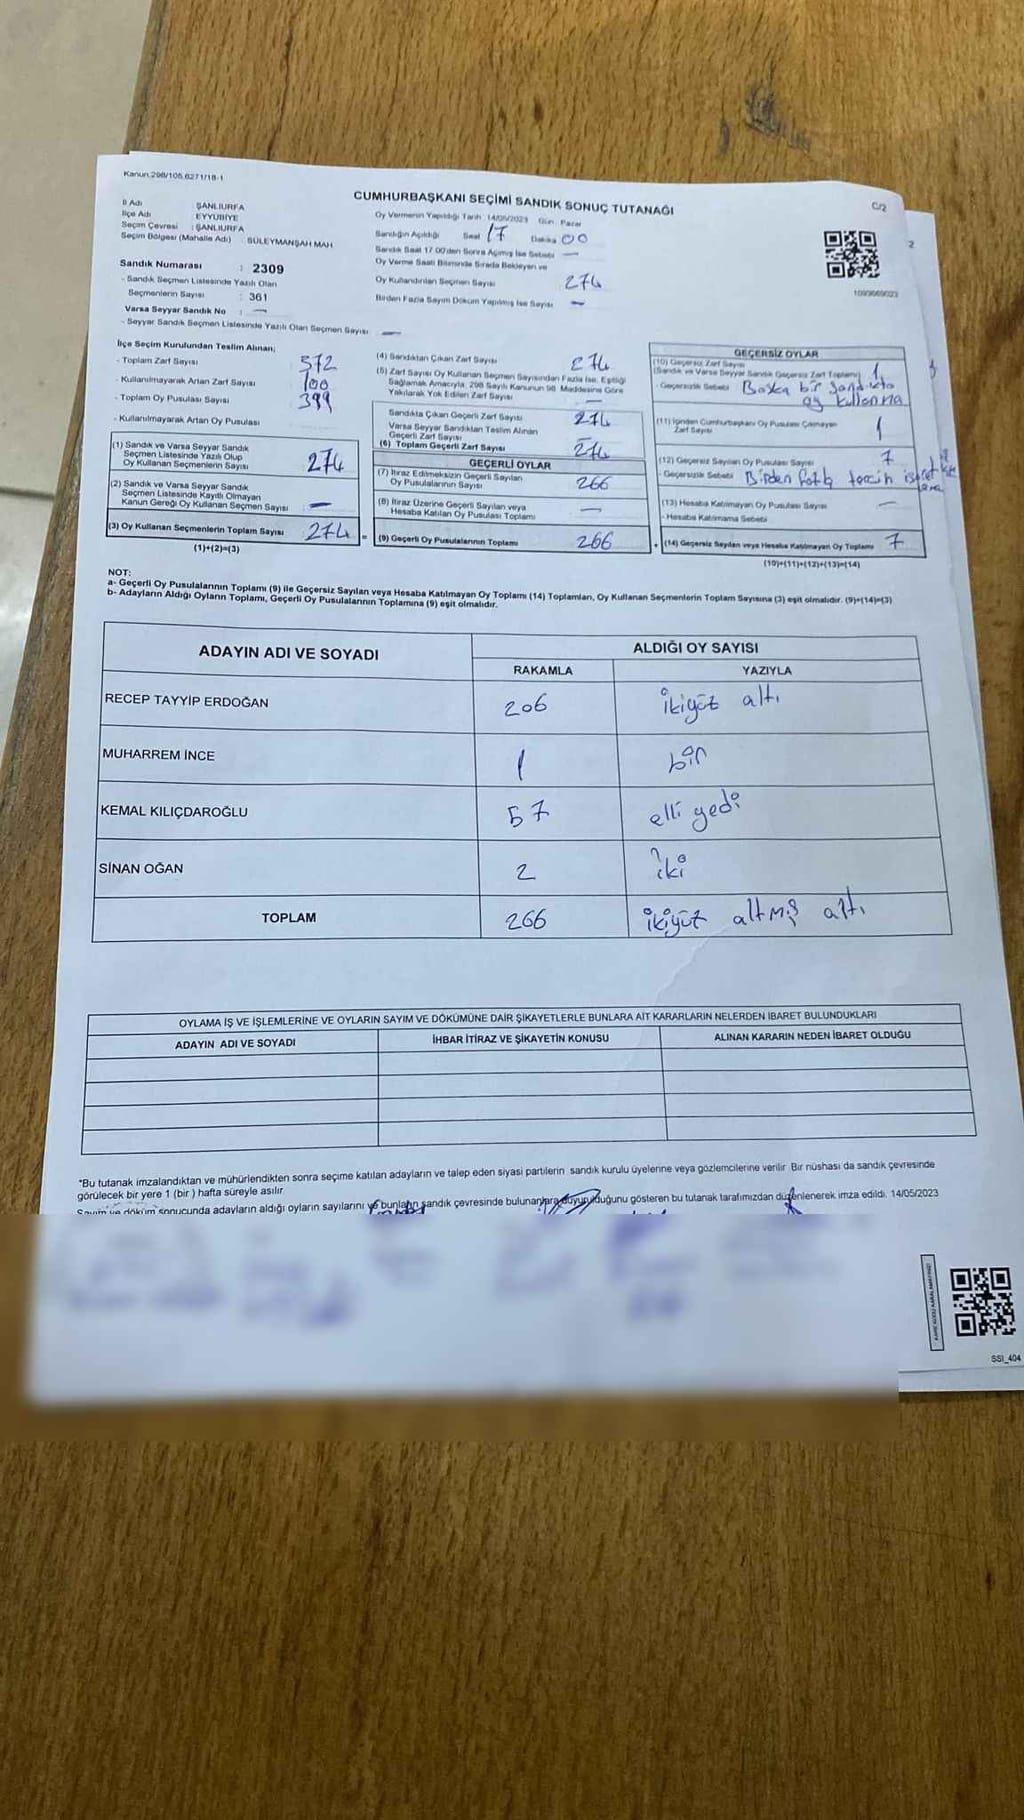 Kanun.298/105,6271/18-1
CUMHURBAŞKANI SEÇİMİ SANDIK SONUÇ TUTANAĞI
C/2
2
İl Adı ŞANLIURFA
İlçe Adı EYYÜBİYE
Seçim Çevresi : ŞANLIURFA
Seçim Bölgesi (Mahalle Adı) : SÜLEYMANŞAH MAH.
Sandık Numarası : 2309
- Sandık Seçmen Listesinde Yazılı Olan
Seçmenlerin Sayısı : 361
Varsa Seyyar Sandık No : —
- Seyyar Sandık Seçmen Listesinde Yazılı Olan Seçmen Sayısı —
Oy Vermenin Yapıldığı Tarih 14/05/2023 Gün: Pazar
Sandığın Açıldığı Saat 17 Dakika 00
Sandık Saat 17.00'den Sonra Açılmış İse Sebebi —
Oy Verme Saati Bitiminde Sırada Bekleyen ve
Oy Kullandırılan Seçmen Sayısı 274
Birden Fazla Sayım Döküm Yapılmış İse Sayısı —
1093669023
İlçe Seçim Kurulundan Teslim Alınan;
- Toplam Zarf Sayısı 372
- Kullanılmayarak Artan Zarf Sayısı 100
- Toplam Oy Pusulası Sayısı 399
- Kullanılmayarak Artan Oy Pusulası
(1) Sandık ve Varsa Seyyar Sandık
Seçmen Listesinde Yazılı Olup
Oy Kullanan Seçmenlerin Sayısı 274
(2) Sandık ve Varsa Seyyar Sandık
Seçmen Listesinde Kayıtlı Olmayan
Kanun Gereği Oy Kullanan Seçmen Sayısı —
(3) Oy Kullanan Seçmenlerin Toplam Sayısı 274 =
(1)+(2)=(3)
(4) Sandıktan Çıkan Zarf Sayısı 274
(5) Zarf Sayısı Oy Kullanan Seçmen Sayısından Fazla İse, Eşitliği
Sağlamak Amacıyla, 298 Sayılı Kanunun 98. Maddesine Göre
Yakılarak Yok Edilen Zarf Sayısı —
Sandıkta Çıkan Geçerli Zarf Sayısı 274
Varsa Seyyar Sandıktan Teslim Alınan
Geçerli Zarf Sayısı
(6) Toplam Geçerli Zarf Sayısı 274
GEÇERLİ OYLAR
(7) İtiraz Edilmeksizin Geçerli Sayılan
Oy Pusulalarının Sayısı 266
(8) İtiraz Üzerine Geçerli Sayılan veya
Hesaba Katılan Oy Pusulası Toplamı —
(9) Geçerli Oy Pusulalarının Toplamı 266 +
GEÇERSİZ OYLAR
(10) Geçersiz Zarf Sayısı
(Sandık ve Varsa Seyyar Sandık Geçersiz Zarf Toplamı) 1
- Geçersizlik Sebebi Başka bir sandıkta
oy kullanma
(11) İçinden Cumhurbaşkanı Oy Pusulası Çıkmayan
Zarf Sayısı 1
(12) Geçersiz Sayılan Oy Pusulası Sayısı 7
- Geçersizlik Sebebi Birden fazla tercih
(13) Hesaba Katılmayan Oy Pusulası Sayısı —
- Hesaba Katılmama Sebebi
(14) Geçersiz Sayılan veya Hesaba Katılmayan Oy Toplamı 7
(10)+(11)+(12)+(13)=(14)
NOT:
a- Geçerli Oy Pusulalarının Toplamı (9) ile Geçersiz Sayılan veya Hesaba Katılmayan Oy Toplamı (14) Toplamları, Oy Kullanan Seçmenlerin Toplam Sayısına (3) eşit olmalıdır. (9)+(14)=(3)
b- Adayların Aldığı Oyların Toplamı, Geçerli Oy Pusulalarının Toplamına (9) eşit olmalıdır.
ADAYIN ADI VE SOYADI ALDIĞI OY SAYISI
RAKAMLA YAZIYLA
RECEP TAYYİP ERDOĞAN 206 ikiyüz altı
MUHARREM İNCE 1 bir
KEMAL KILIÇDAROĞLU 57 elli yedi
SİNAN OĞAN 2 iki
TOPLAM 266 ikiyüz altmış altı
OYLAMA İŞ VE İŞLEMLERİNE VE OYLARIN SAYIM VE DÖKÜMÜNE DAİR ŞİKAYETLERLE BUNLARA AİT KARARLARIN NELERDEN İBARET BULUNDUKLARI
ADAYIN ADI VE SOYADI İHBAR İTİRAZ VE ŞİKAYETİN KONUSU ALINAN KARARIN NEDEN İBARET OLDUĞU
*Bu tutanak imzalandıktan ve mühürlendikten sonra seçime katılan adayların ve talep eden siyasi partilerin sandık kurulu üyelerine veya gözlemcilerine verilir. Bir nüshası da sandık çevresinde
görülecek bir yere 1 (bir ) hafta süreyle asılır.
Sayım ve döküm sonucunda adayların aldığı oyların sayılarını ve bunların sandık çevresinde bulunanlara duyurulduğunu gösteren bu tutanak tarafımızdan düzenlenerek imza edildi. 14/05/2023
SSI_404